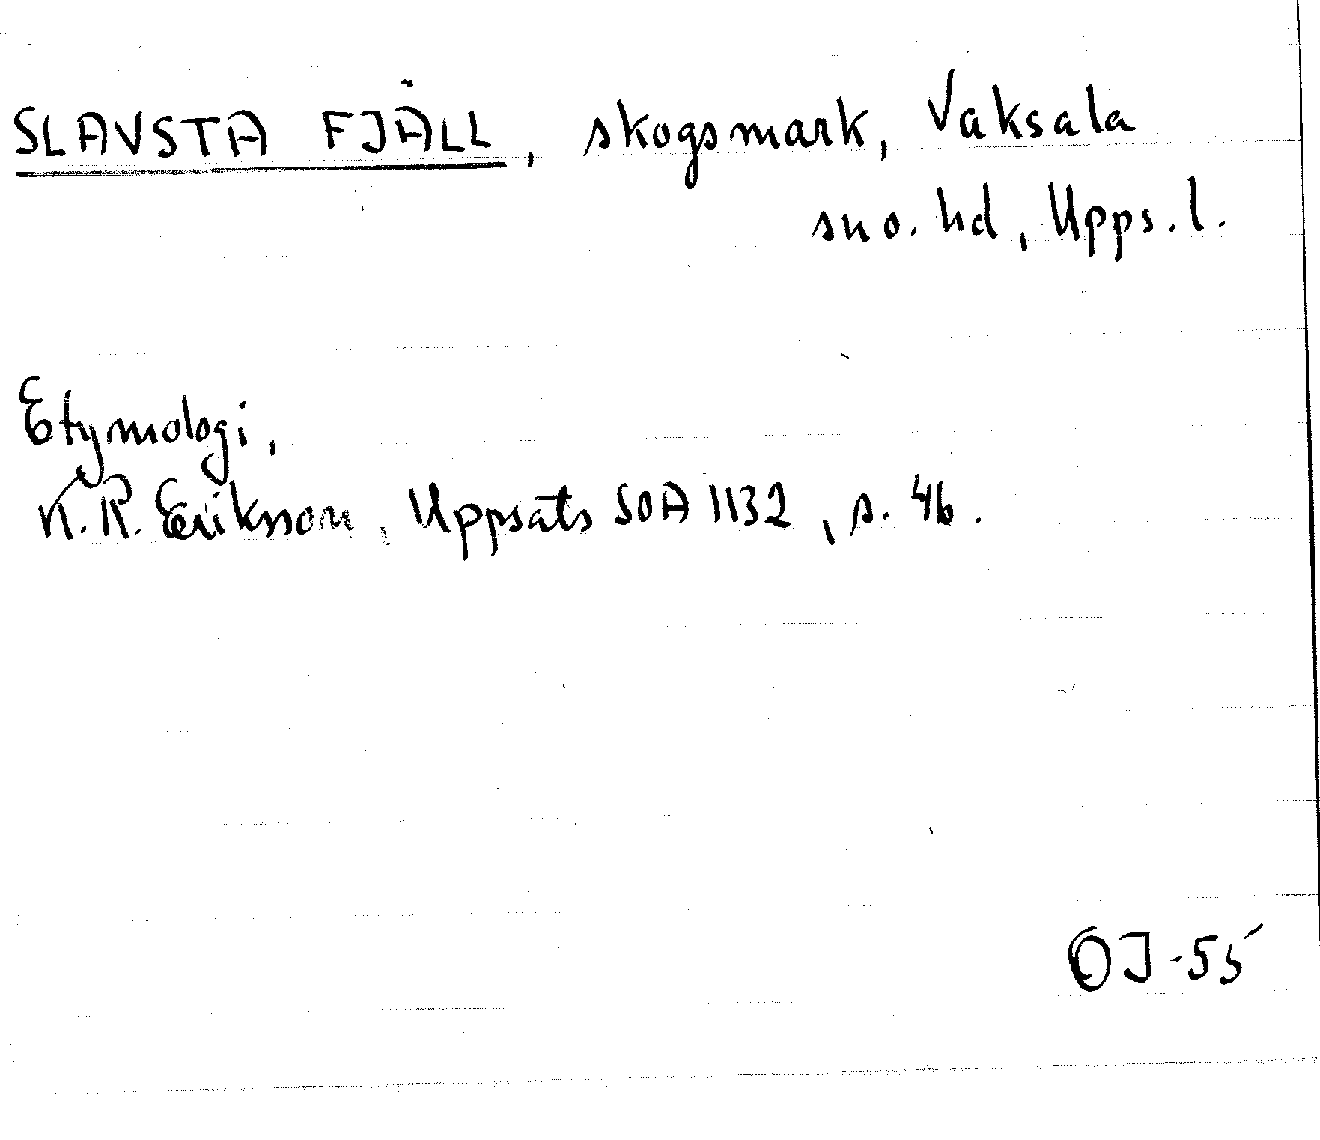 SLAVSTA FJÄLL, skogsmark, Vaksala
sn o. hd, Upps. l.
Etymologi,
K.R. Erikson, Uppsats SOA 1132, s. 46.
OJ-55